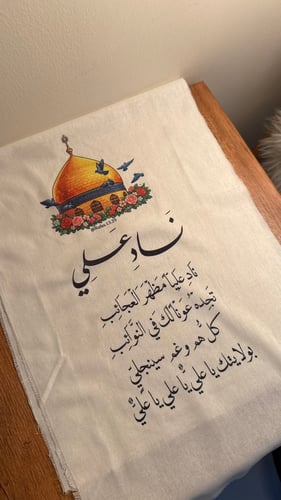 نَادِ عَلِي
نَادِ عَلياً مَظْهَرَ الْعَجَائِبِ
تَجِدْهُ عَوْناً لَكَ فِي النَّوَائِبِ
كُلُّ هَمٍّ وَغَمٍّ سَيَنْجَلِي
بِوِلَايَتِكَ يَا عَلِيُّ يَا عَلِيُّ يَا عَلِيُّ